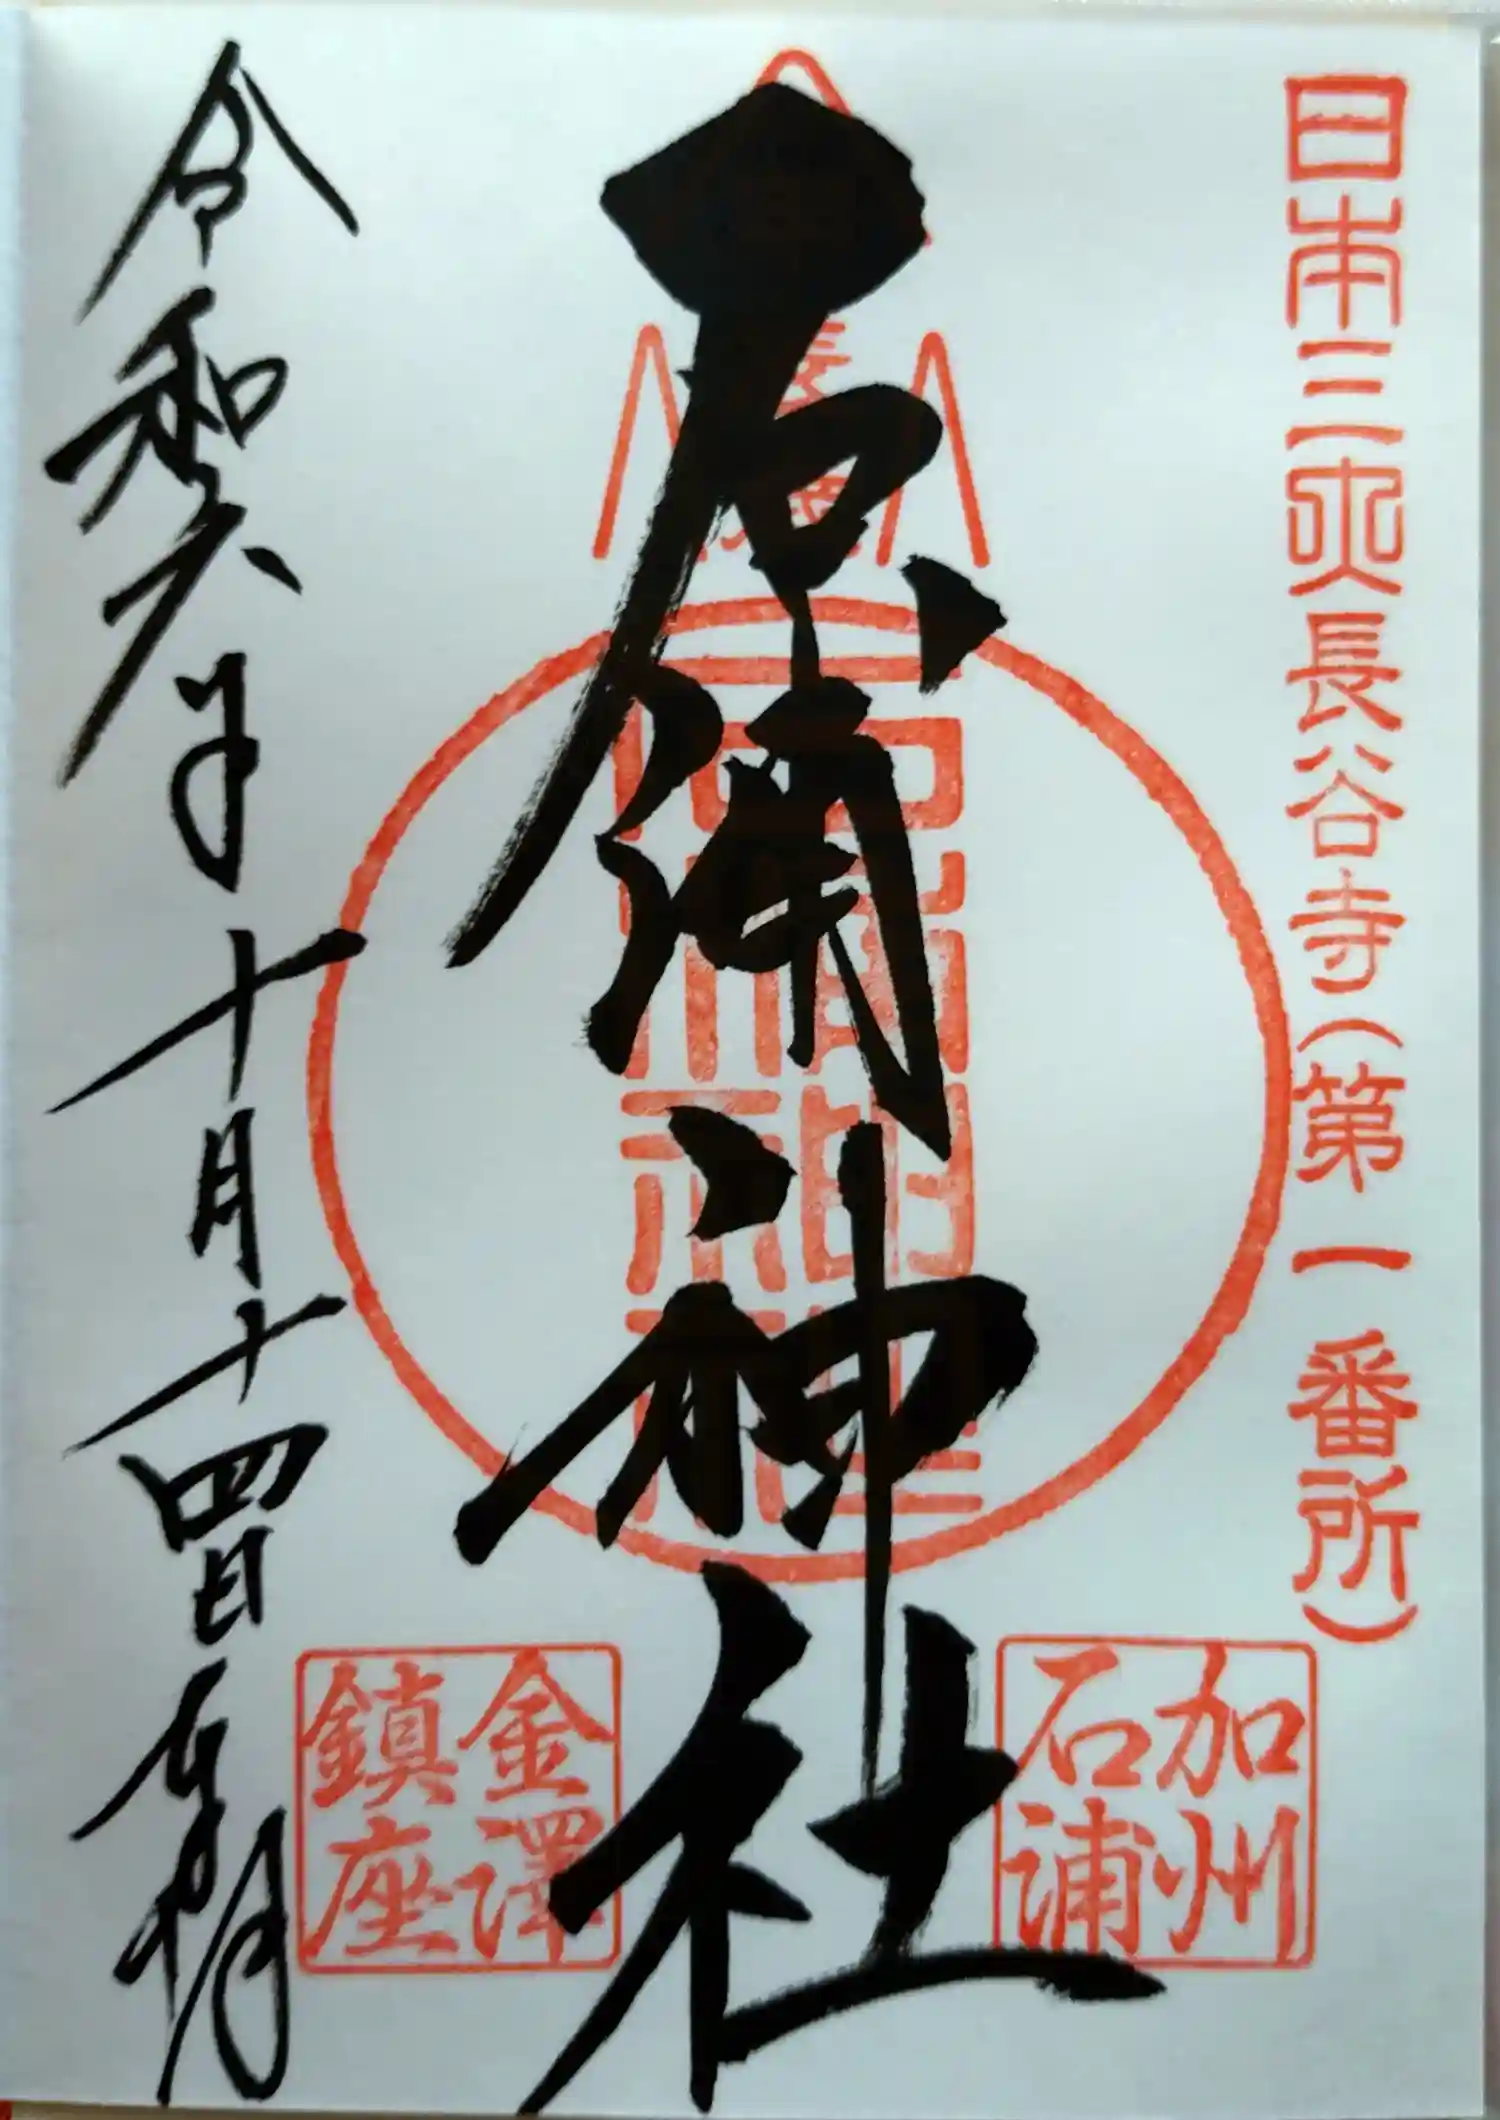 日本三大長谷寺(第一番所)
加州
石浦
石浦神社
石浦神社
金澤
鎮座
令和六年十月十四日 奉拝